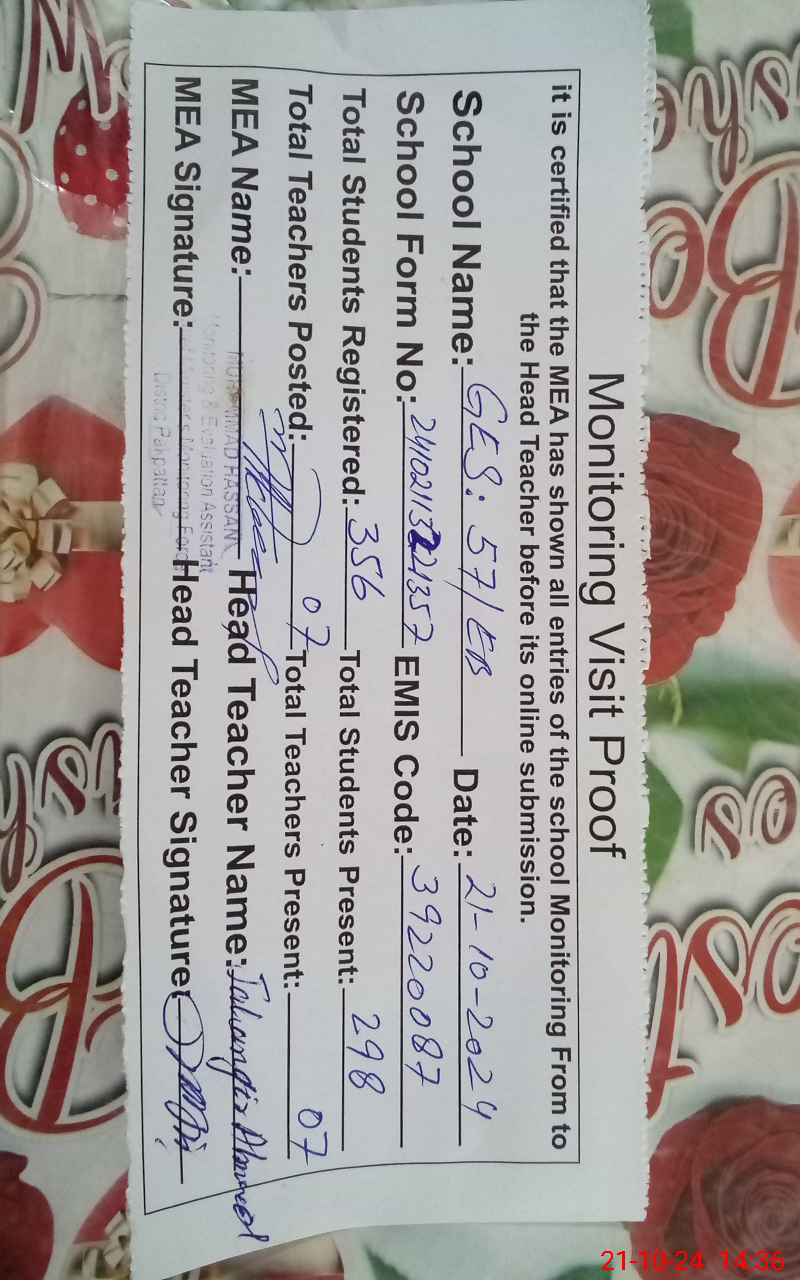 Monitoring Visit Proof
it is certified that the MEA has shown all entries of the school Monitoring From to
the Head Teacher before its online submission.
School Name:- GES: 57/EB Date:- 21-10-2024
School Form No:- EMIS Code:- 39220087
Total Students Registered:- 356 Total Students Present:- 298
Total Teachers Posted:- 07 Total Teachers Present:- 07
MEA Name:- MUHAMMAD HASSAN Head Teacher Name:- Jahangir Ahmed
Monitoring & Evaluation Assistant
MEA Signature:- Head Teacher Signature:
Chief Minister's Monitoring Force
District Pakpattan
21-10-24 14:36